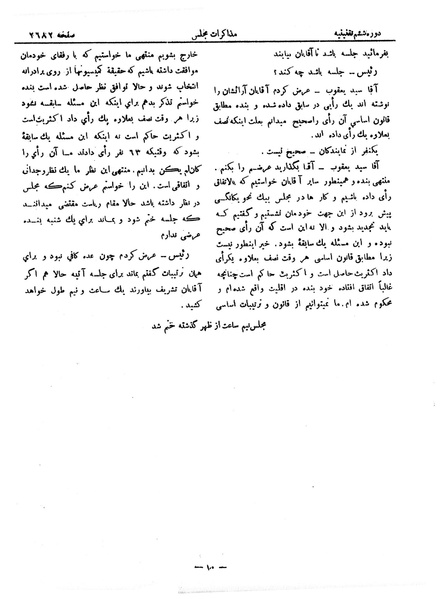 دوره ششم تقنینیه
مذاکرات مجلس
صفحه ۲۶۸۲
بفرمائید جلسه باشد تا آقایان بیایند
رئیس – جلسه باشد چه کنند؟
آقا سید یعقوب – عرض کردم آقایان آرائشان را
نوشته اند یك رأیی در سابق داده شده و بنده مطابق
قانون اساسی آن رأی راصحیح میدانم بعلت اینکه نصف
بعلاوه یك رأی داده اند.
یکنفر از نمایندگان – صحیح نیست.
آقا سید یعقوب – آقا بگذارید عرضم را بکنم.
منتهی بنده و همینطور سایر آقایان خواستیم که بالاتفاق
رأی داده باشیم و کار ها در مجلس بیك نحو یگانگی
پیش برود از این جهت خودمان نشستیم و گفتیم که
باید تجدید بشود و الا نه این است که آن رأی صحیح
نبوده و این مسئله یك سابقه بشود. خیر اینطور نیست
زیرا مطابق قانون اساسی هر وقت نصف بعلاوه یکرأی
داد اکثریت حاصل است و اکثریت حاکم است چنانچه
غالباً اتفاق افتاده خود بنده در اقلیت واقع شده ام و
محکوم شده ام. ما نمیتوانیم از قانون و ترتیبات اساسی
خارج بشویم منتهی ما خواستیم که با رفقای خودمان
موافقت داشته باشیم که حقیقة کمیسیونها از روی برادرانه
انتخاب شوند و حالا توافق نظر حاصل شده است بنده
خواستم تذکر بدهم برای اینکه این مسئله سابقه نشود
زیرا هر وقت نصف بعلاوه یك رأی داد اکثریت است
و اکثریت حاکم است نه اینکه این مسئله یك سابقهٔ
بشود که وقتیکه ۶۳ نفر رأی دادند ما آن رأی را
کان‌لم یکن بدانیم. منتهی این نظر ما یك نظر وجدانی
و اتفاقی است. این را خواستم عرض کنم که مجلس
در نظر داشته باشد حالا مقام ریاست مقتضی میدانند
که جلسه ختم شود و بماند برای یك شنبه بنده
عرضی ندارم
رئیس – عرض کردم چون عده کافی نبود و برای
همان ترتیبات گفتم بماند برای جلسه آتیه حالا هم اگر
آقایان تشریف بیاورند یك ساعت و نیم طول خواهد
کشید.
مجلس نیم ساعت از ظهر گذشته ختم شد
– ۱۰ –